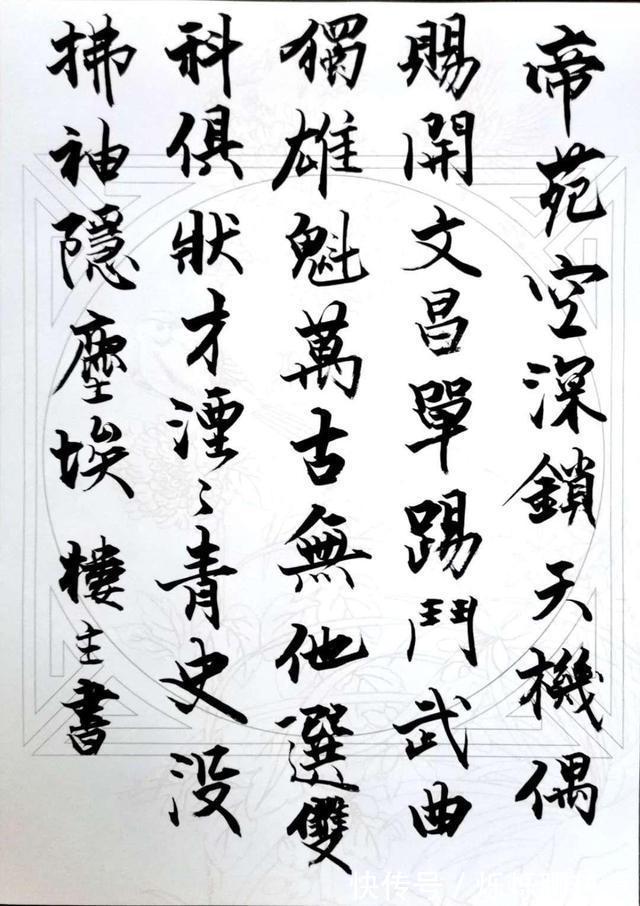 帝苑空深鎖天機偶
賜開文昌單踢鬥武曲
獨雄魁萬古無他選雙
科俱狀才湮〻青史没
拂袖隱塵埃 樓主書
快传号 /